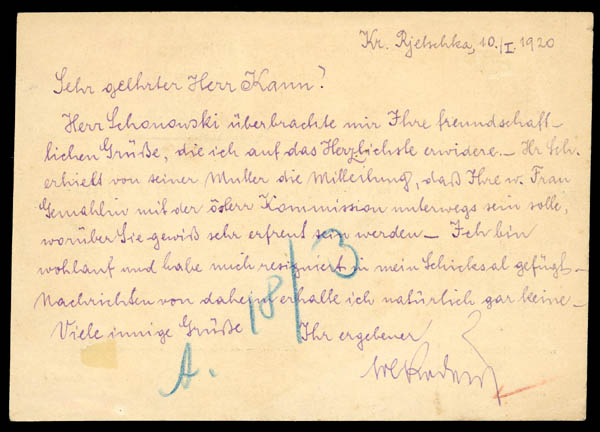 Kr. Rjetschka, 10./I. 1920
Sehr geehrter Herr Kann!
Herr Schonowski überbrachte mir Ihre freundschaft-
lichen Grüße, die ich auf das Herzlichste erwidere. – Hr Sch.
erhielt von seiner Mutter die Mitteilung, daß Ihre w. Frau
Gemahlin mit der österr Kommission unterwegs sein solle,
worüber Sie gewiß sehr erfreut sein werden – Ich bin
wohlauf und habe mich resigniert in mein Schicksal gefügt –
Nachrichten von daheim erhalte ich natürlich gar keine –
Viele innige Grüße Ihr ergebener
18/3
A.